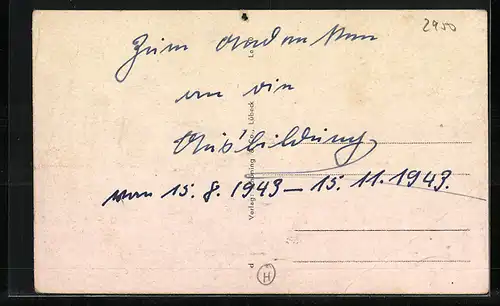 2950
Zum Andenken
an die
Ausbildung
vom 15. 8. 1943 – 15. 11. 1943.
Verlag
Lübeck
H